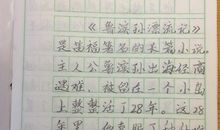 《鲁滨孙漂流记》
是笛福著名的长篇小说。
主人公鲁滨孙出海经商
遇难，被留在一个小岛
上整整活了28年。这28
年里，他克服了种种